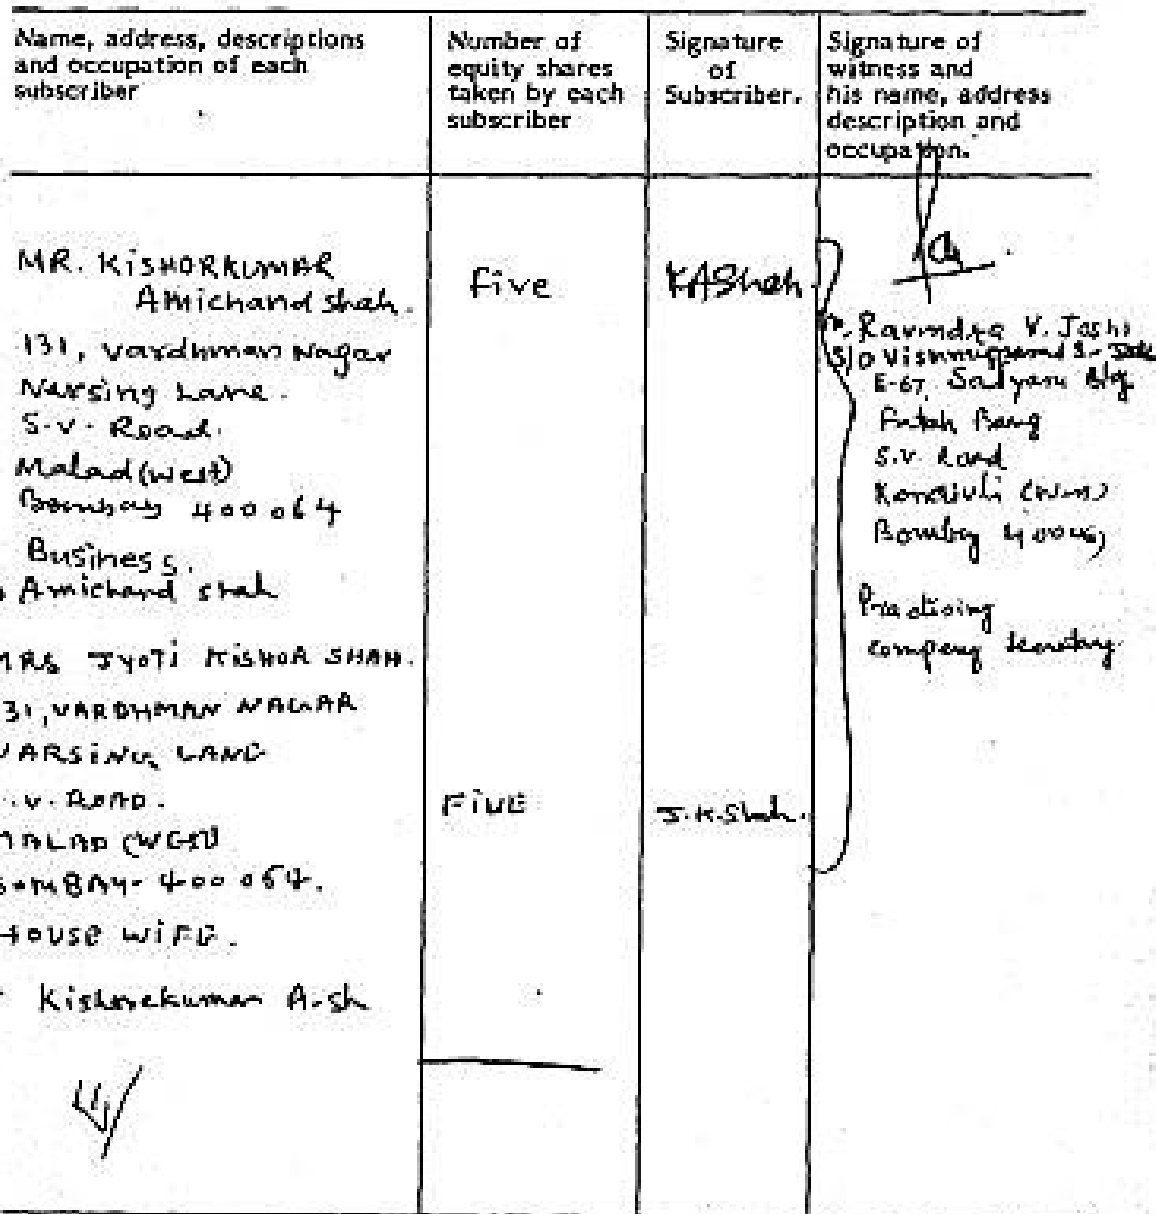 Name, address, descriptions
and occupation of each
subscriber
Number of
equity shares
taken by each
subscriber
Signature
of
Subscriber.
Signature of
witness and
his name, address
description and
occupation.
MR. KISHORKUMAR
Amichand Shah.
131, Vardhman Nagar
Narsing Lane.
S.V. Road.
Malad (West)
Bombay 400064
Business.
Amichand Shah
Five
KAShah
Ravindra V. Joshi
S/O
E-67, Satyam Bldg
S.V. Road
Kandivli (West)
Bombay
Practising
Company Secretary
MRS JYOTI KISHOR SHAH.
31, VARDHMAN NAGAR
ARSING LANE
.V. ROAD.
ALAD (WEST)
OMBAY-400 064.
HOUSE WIFE.
Kishorekumar A. Sh
FIVE
J.K.Shah.